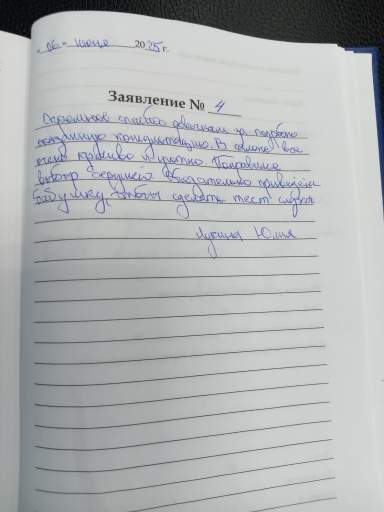 « 06 » июня 2025 г.
Заявление № 4
Огромное спасибо девочкам за подробно
полученную консультацию. В салоне все
очень красиво и уютно. Понравился
выбор беруш. Обязательно привезем
бабушку, чтобы сделать тест слуха
Лукина Юлия